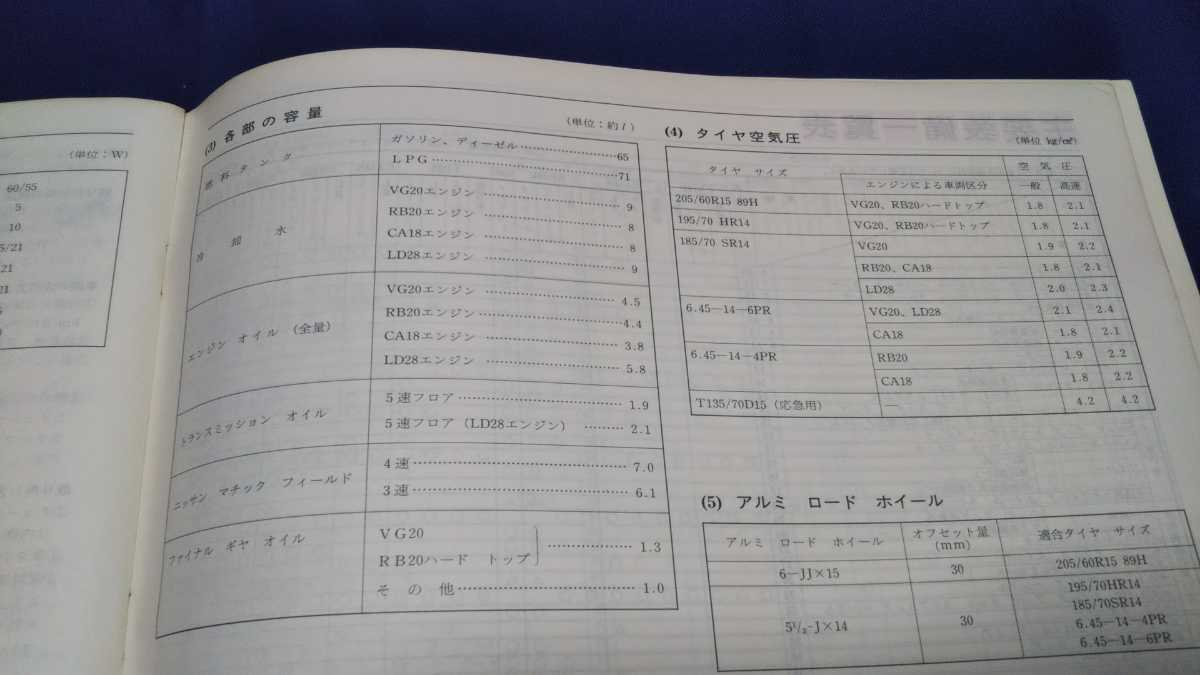 (単位：W)
60/55
5
10
5/21
21
21
(3) 各部の容量
(単位：約l)
燃料タンク
ガソリン、ディーゼル……65
LPG……71
冷却水
VG20エンジン……9
RB20エンジン……8
CA18エンジン……8
LD28エンジン……9
エンジン オイル (全量)
VG20エンジン……4.5
RB20エンジン……4.4
CA18エンジン……3.8
LD28エンジン……5.8
トランスミッション オイル
5速フロア……1.9
5速フロア (LD28エンジン)……2.1
ニッサン マチック フィールド
4速……7.0
3速……6.1
ファイナル ギヤ オイル
VG20
RB20ハード トップ……1.3
その他……1.0
(4) タイヤ空気圧
(単位 kg/cm²)
タイヤ サイズ エンジンによる車両区分 空気圧
一般 高速
205/60R15 89H VG20、RB20ハードトップ 1.8 2.1
195/70 HR14 VG20、RB20ハードトップ 1.8 2.1
185/70 SR14 VG20 1.9 2.2
RB20、CA18 1.8 2.1
LD28 2.0 2.3
6.45－14－6PR VG20、LD28 2.1 2.4
CA18 1.8 2.1
6.45－14－4PR RB20 1.9 2.2
CA18 1.8 2.2
T135/70D15 (応急用) — 4.2 4.2
(5) アルミ ロード ホイール
アルミ ロード ホイール オフセット量 (mm) 適合タイヤ サイズ
6－JJ×15 30 205/60R15 89H
5¹/₂-J×14 30 195/70HR14
185/70SR14
6.45－14－4PR
6.45－14－6PR